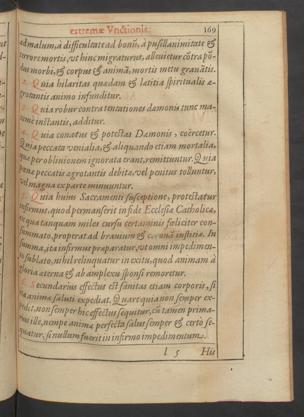 extremæ Vnctionis. 169
ad malum, à difficultate ad bonũ, à pusillanimitate &
terrore mortis, vt hinc migraturus, alleuietur cõtra põ-
dus morbi, & corpus & animã, mortis metu grauãtis.
Quia hilaritas quædam & lætitia spiritualis æ-
grotantis animo infunditur.
Quia robur contra tentationes dæmonis tunc ma-
xime instantis, additur.
Quia conatus & potestas Dæmonis, coërcetur.
Quia peccata venialia, & aliquando etiam mortalia,
quæ per obliuionem ignorata erant, remittuntur. Quia
pœnæ peccatis ægrotantis debitæ, vel penitus tolluntur,
vel magna ex parte minuuntur.
Quia huius Sacramenti susceptione, protestatur
infirmus, quod permanserit in fide Ecclesiæ Catholicæ,
ex qua tanquam miles cursu certaminis feliciter con-
summato, properat ad brauium & coronã iustitiæ. In
summa, ita infirmus præparatur, vt omni impedimen-
to sublato, nihil relinquatur in exitu, quod animam à
gloria æterna & ab amplexu sponsi remoretur.
Secundarius effectus est sanitas etiam corporis, si
animæ saluti expediat. Quare quia non semper ex-
pedit, non semper hic effectus sequitur, cũ tamen prima-
rius ille, nempe animæ perfecta salus semper & certò se-
quatur, si nullum fuerit in infirmo impedimentum.
l 5 His